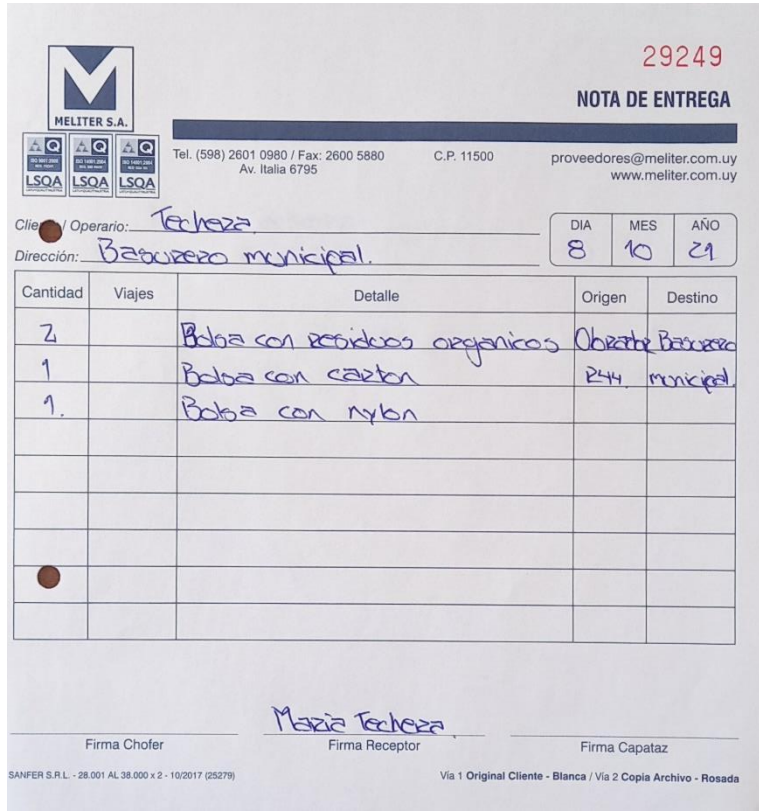 29249
NOTA DE ENTREGA
MELITER S.A.
LSQA LSQA LSQA
Tel. (598) 2601 0980 / Fax: 2600 5880 C.P. 11500 proveedores@meliter.com.uy
Av. Italia 6795 www.meliter.com.uy
/ Operario: Techera
Dirección: Basurero municipal.
DIA MES AÑO
8 10 21
Cantidad Viajes Detalle Origen Destino
2 Bolsa con residuos organicos Basurero
1 Bolsa con carton 244. municipal.
1. Bolsa con nylon
Maria Techera
Firma Chofer Firma Receptor Firma Capataz
SANFER S.R.L. - 28.001 AL 38.000 x 2 - 10/2017 (25279) Vía 1 Original Cliente - Blanca / Vía 2 Copia Archivo - Rosada